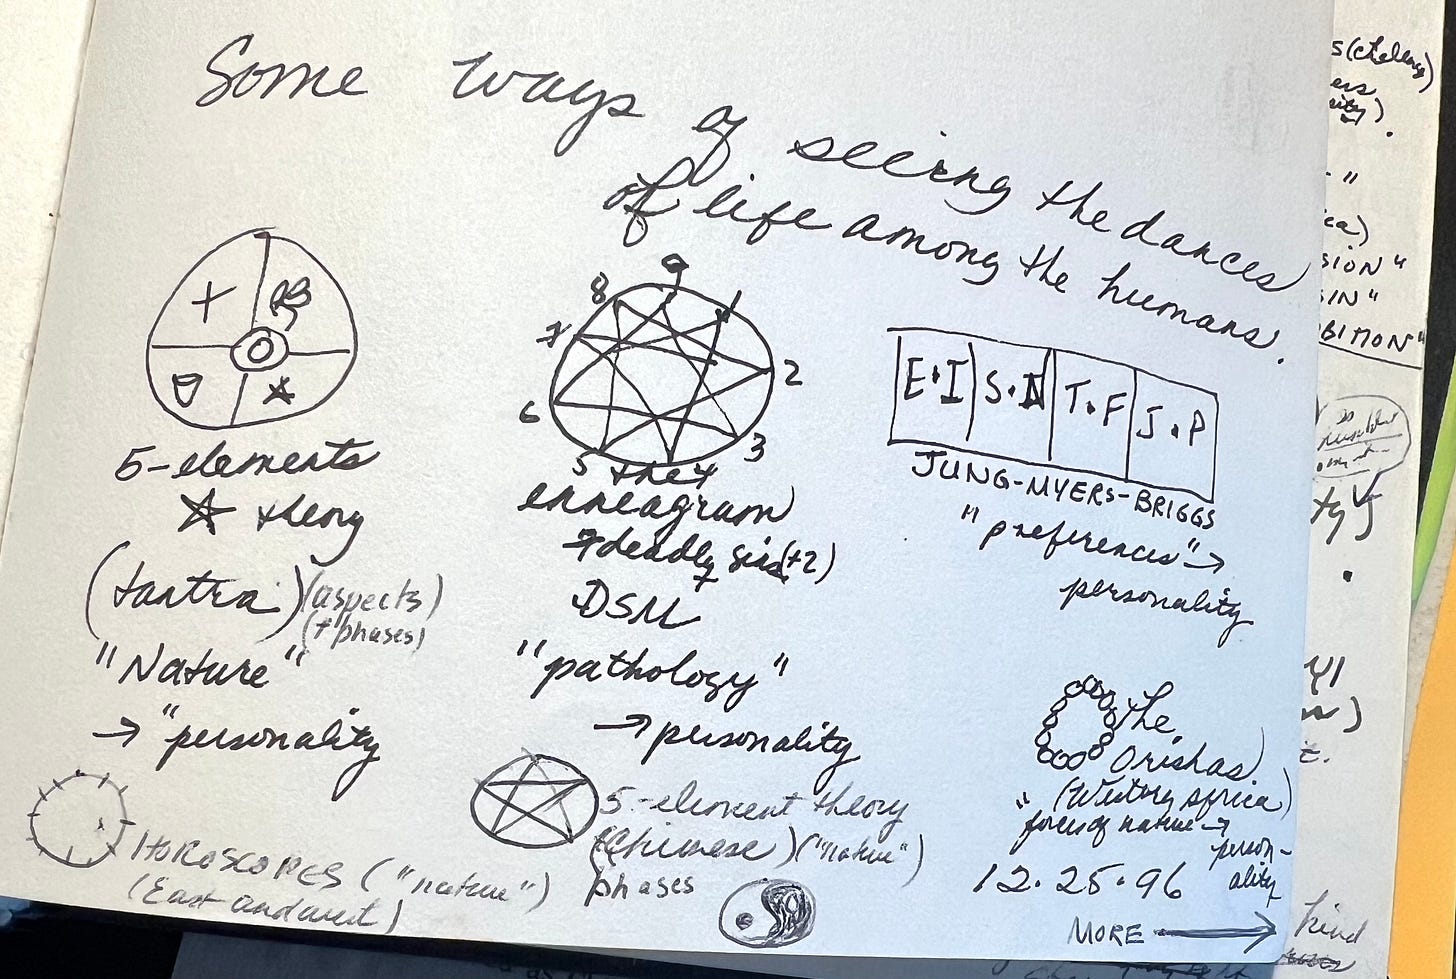 Some ways of seeing the dances
of life among the humans.
5-elements
theory
(tantra) (aspects)
(+ phases)
"Nature"
→ "personality
9
8
1
7
2
6
3
5
4
the
enneagram
7 deadly sins (+2)
DSM
"pathology"
→ personality
E·I S·N T·F J·P
JUNG-MYERS-BRIGGS
"preferences" →
personality
HOROSCOPES ("nature")
(East and west)
5-element theory
(Chinese) ("nature")
phases
the
Orishas.
(Western Africa)
"forces of nature" →
person-
ality
12.25.96
MORE →
kind